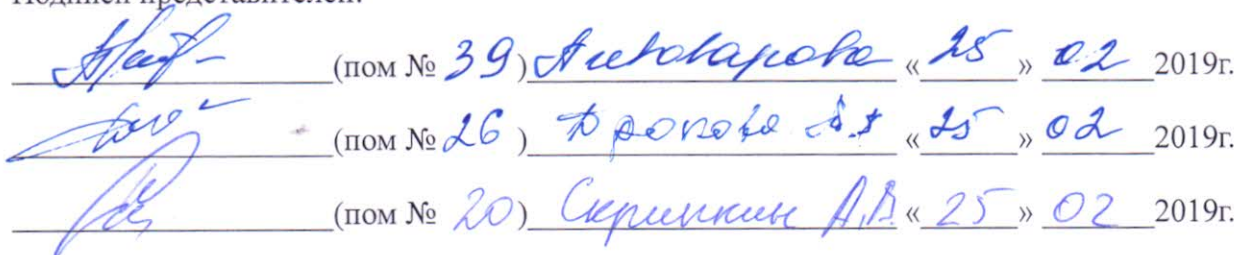 Подписи представителей:
(пом № 39) Пивоварова « 25 » 02 2019г.
(пом № 26) « 25 » 02 2019г.
(пом № 20) Скрипкин А.В. « 25 » 02 2019г.